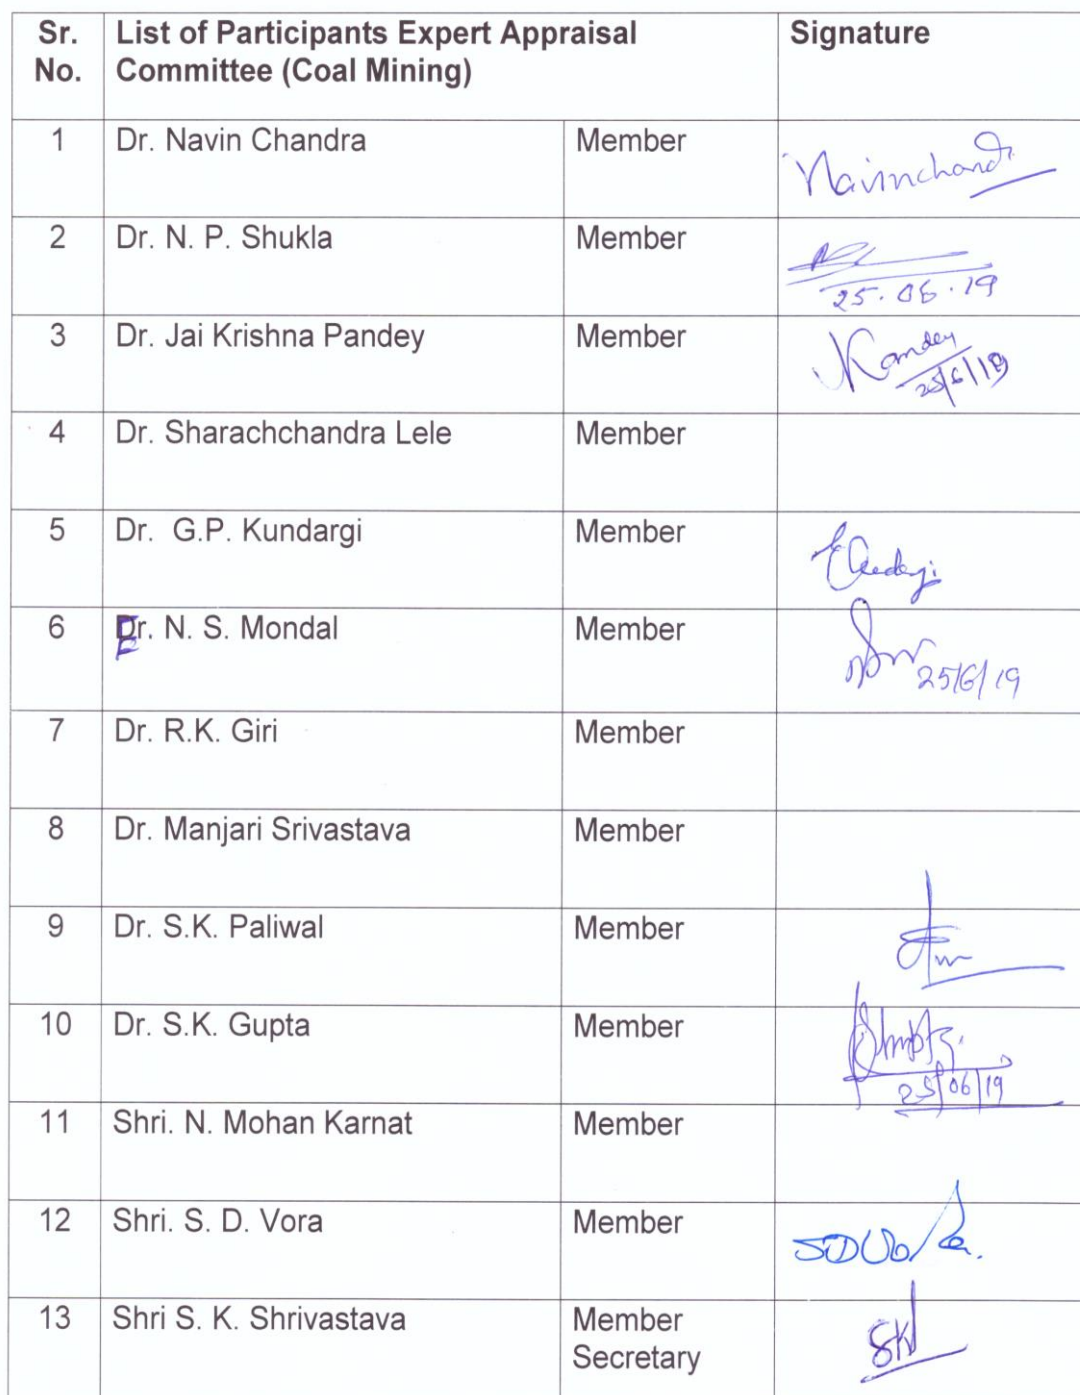 Sr. No. List of Participants Expert Appraisal Committee (Coal Mining) Signature
1 Dr. Navin Chandra Member Navinchandr
2 Dr. N. P. Shukla Member
25.06.19
3 Dr. Jai Krishna Pandey Member JKPandey
25/6/19
4 Dr. Sharachchandra Lele Member
5 Dr. G.P. Kundargi Member
6 Er. N. S. Mondal Member
25/6/19
7 Dr. R.K. Giri Member
8 Dr. Manjari Srivastava Member
9 Dr. S.K. Paliwal Member
10 Dr. S.K. Gupta Member
25/06/19
11 Shri. N. Mohan Karnat Member
12 Shri. S. D. Vora Member SDVora
13 Shri S. K. Shrivastava Member Secretary SK